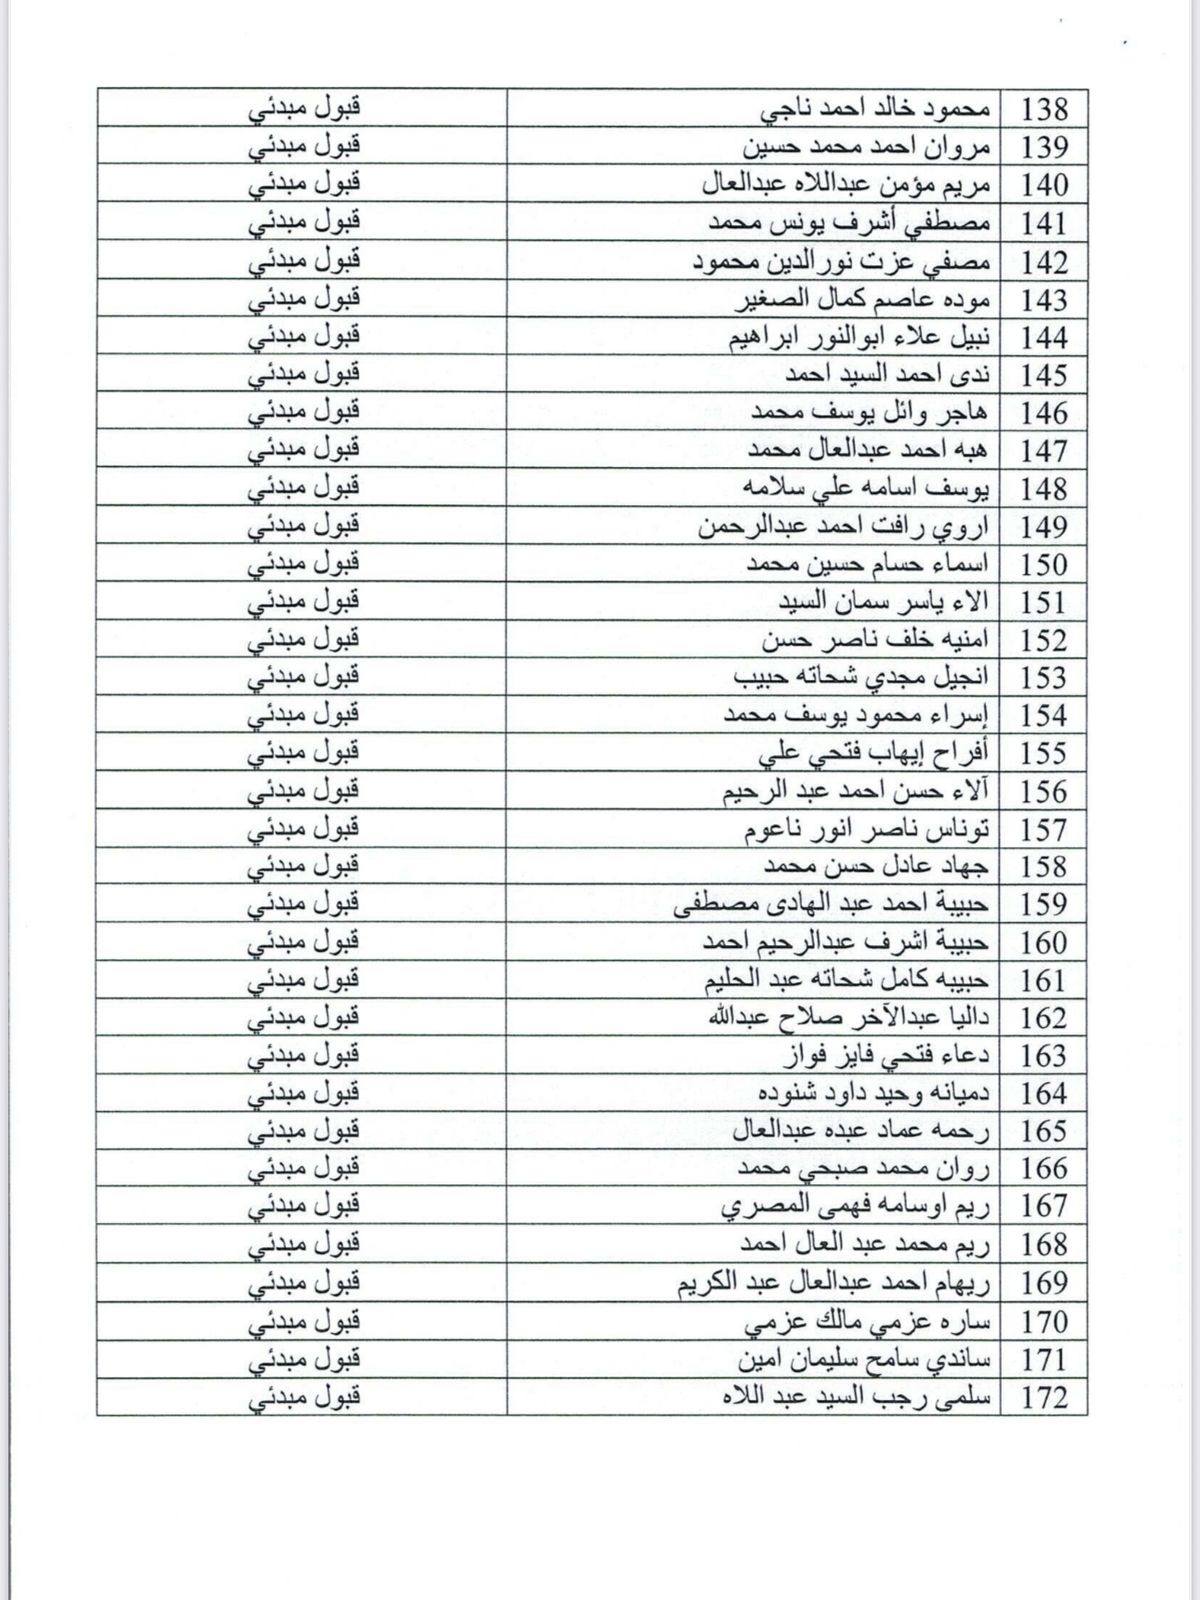 138 محمود خالد احمد ناجي قبول مبدئي
139 مروان احمد محمد حسين قبول مبدئي
140 مريم مؤمن عبداللاه عبدالعال قبول مبدئي
141 مصطفي أشرف يونس محمد قبول مبدئي
142 مصفي عزت نورالدين محمود قبول مبدئي
143 موده عاصم كمال الصغير قبول مبدئي
144 نبيل علاء ابوالنور ابراهيم قبول مبدئي
145 ندى احمد السيد احمد قبول مبدئي
146 هاجر وائل يوسف محمد قبول مبدئي
147 هبه احمد عبدالعال محمد قبول مبدئي
148 يوسف اسامه علي سلامه قبول مبدئي
149 اروي رافت احمد عبدالرحمن قبول مبدئي
150 اسماء حسام حسين محمد قبول مبدئي
151 الاء ياسر سمان السيد قبول مبدئي
152 امنيه خلف ناصر حسن قبول مبدئي
153 انجيل مجدي شحاته حبيب قبول مبدئي
154 إسراء محمود يوسف محمد قبول مبدئي
155 أفراح إيهاب فتحي علي قبول مبدئي
156 آلاء حسن احمد عبد الرحيم قبول مبدئي
157 توناس ناصر انور ناعوم قبول مبدئي
158 جهاد عادل حسن محمد قبول مبدئي
159 حبيبة احمد عبد الهادى مصطفى قبول مبدئي
160 حبيبة اشرف عبدالرحيم احمد قبول مبدئي
161 حبيبه كامل شحاته عبد الحليم قبول مبدئي
162 داليا عبدالآخر صلاح عبدالله قبول مبدئي
163 دعاء فتحي فايز فواز قبول مبدئي
164 دميانه وحيد داود شنوده قبول مبدئي
165 رحمه عماد عبده عبدالعال قبول مبدئي
166 روان محمد صبحي محمد قبول مبدئي
167 ريم اوسامه فهمى المصري قبول مبدئي
168 ريم محمد عبد العال احمد قبول مبدئي
169 ريهام احمد عبدالعال عبد الكريم قبول مبدئي
170 ساره عزمي مالك عزمي قبول مبدئي
171 ساندي سامح سليمان امين قبول مبدئي
172 سلمى رجب السيد عبد اللاه قبول مبدئي